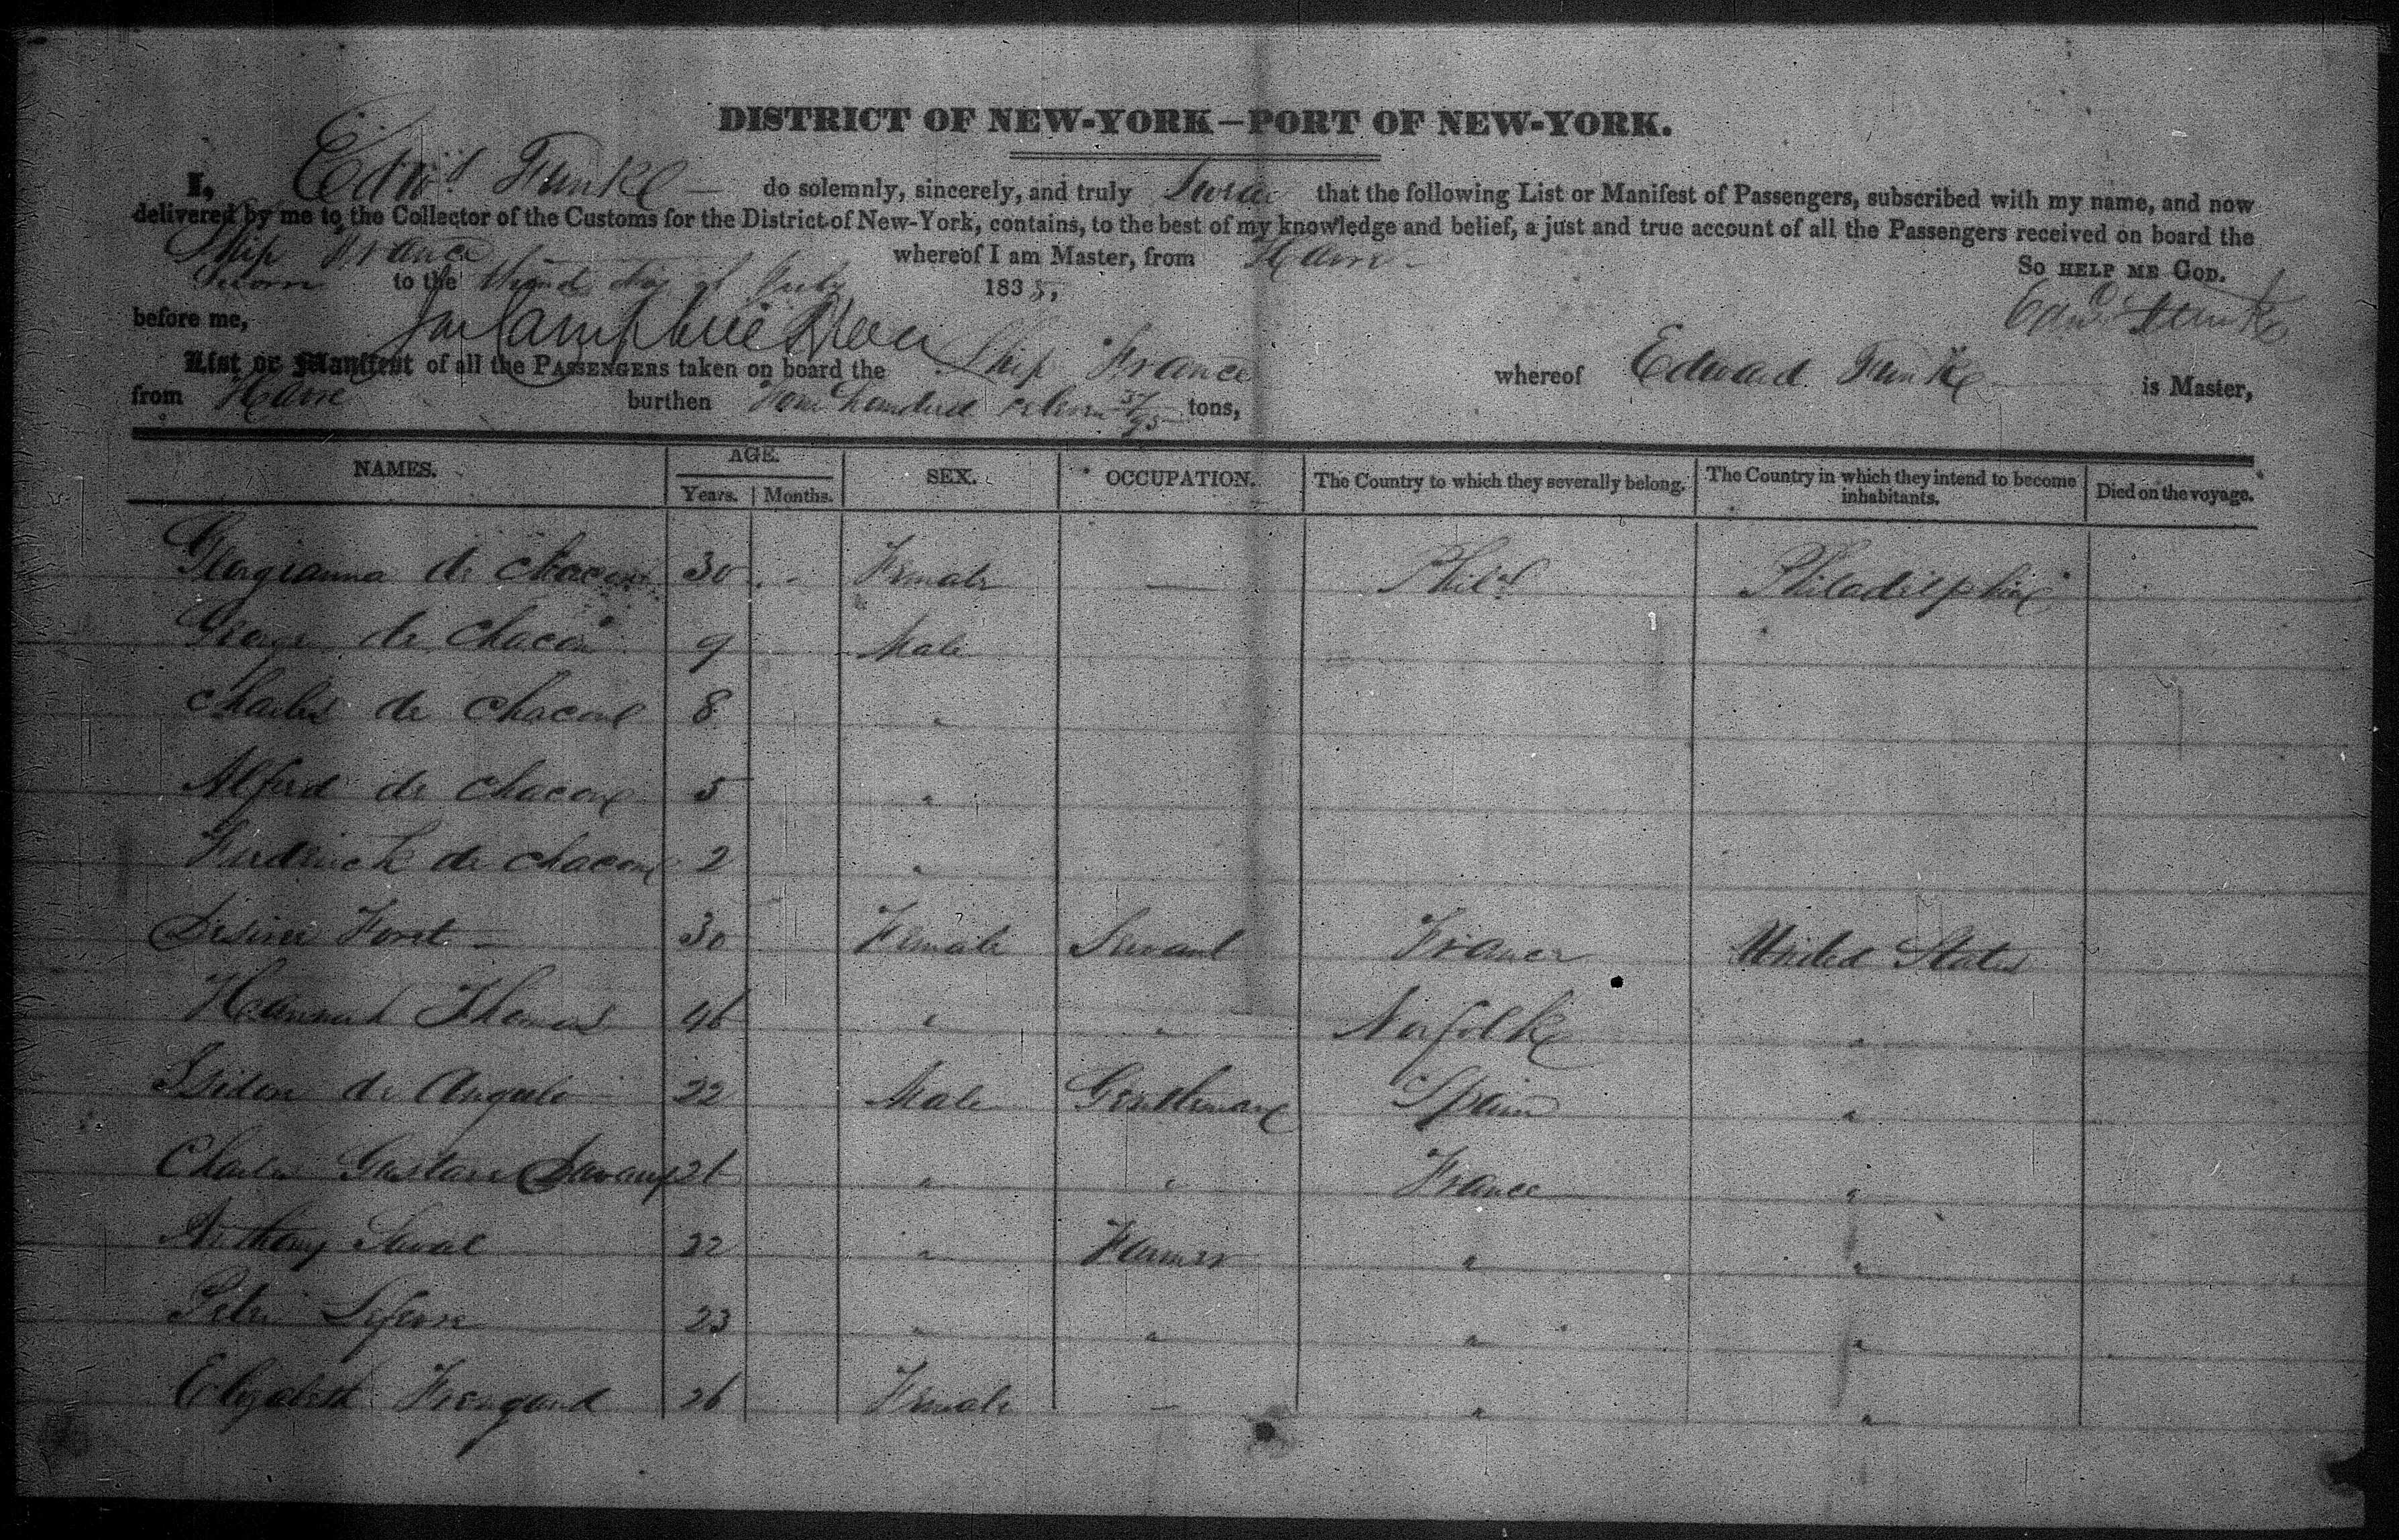 DISTRICT OF NEW-YORK—PORT OF NEW-YORK.
I, Edwd Funke — do solemnly, sincerely, and truly Swear that the following List or Manifest of Passengers, subscribed with my name, and now
delivered by me to the Collector of the Customs for the District of New-York, contains, to the best of my knowledge and belief, a just and true account of all the Passengers received on board the
Ship France whereof I am Master, from Havre — So HELP ME GOD.
Sworn to the third day of July 1835, Edwd Funke
before me,
List or Manifest of all the PASSENGERS taken on board the Ship France whereof Edward Funke is Master,
from Havre burthen Four hundred eleven 37/95 tons,
NAMES. AGE. SEX. OCCUPATION. The Country to which they severally belong. The Country in which they intend to become inhabitants. Died on the voyage.
Years. Months.
Georgianna de Chacon 30 Female — Phila Philadelphia
George de Chacon 9 Male
Charles de Chacon 8 "
Alfred de Chacon 5 "
Frederick de Chacon 2 "
Desirée Foret — 30 Female Servant France United States
Hannah Thomas 46 " " Norfolk "
Isidor de Angulo 22 Male Gentleman Spain "
Charles Gustave 26 " " France "
Anthony 22 " Farmer " "
Peter Lefevre 23 " " " "
Elizabeth 26 Female — " "